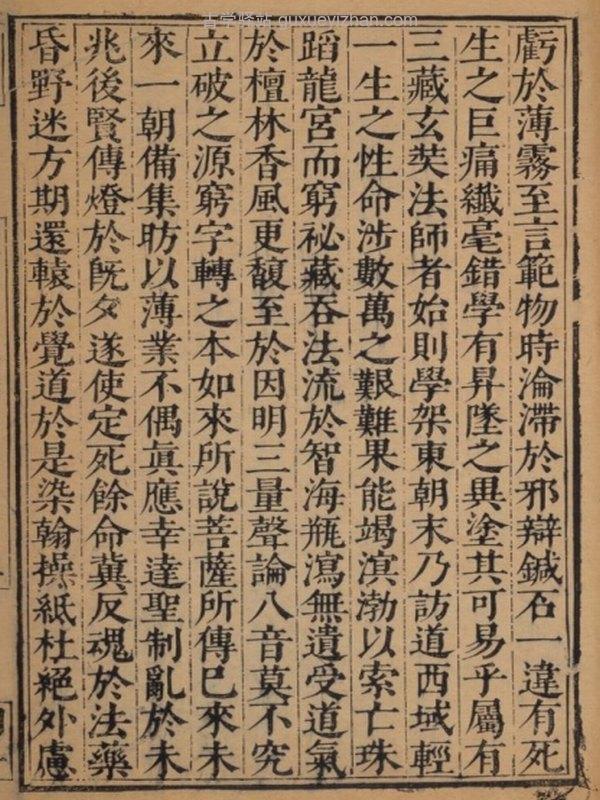 古学驿站 guxueyizhan.com
虧於薄霧至言範物時淪滯於邪辯鍼石一違有死
生之巨痛纖毫錯學有昇墜之異塗其可易乎屬有
三藏玄奘法師者始則學架東朝末乃訪道西域輕
一生之性命涉數萬之艱難果能竭溟渤以索亡珠
蹈龍宮而窮祕藏吞法流於智海瓶瀉無遺受道氣
於檀林香風更馥至於因明三量聲論八音莫不究
立破之源窮字轉之本如來所說菩薩所傳已來未
來一朝備集昉以薄業不偶眞應幸達聖制亂於未
兆後賢傳燈於旣夕遂使定死餘命冀反魂於法藥
昏野迷方期還轅於覺道於是染翰操紙杜絕外慮